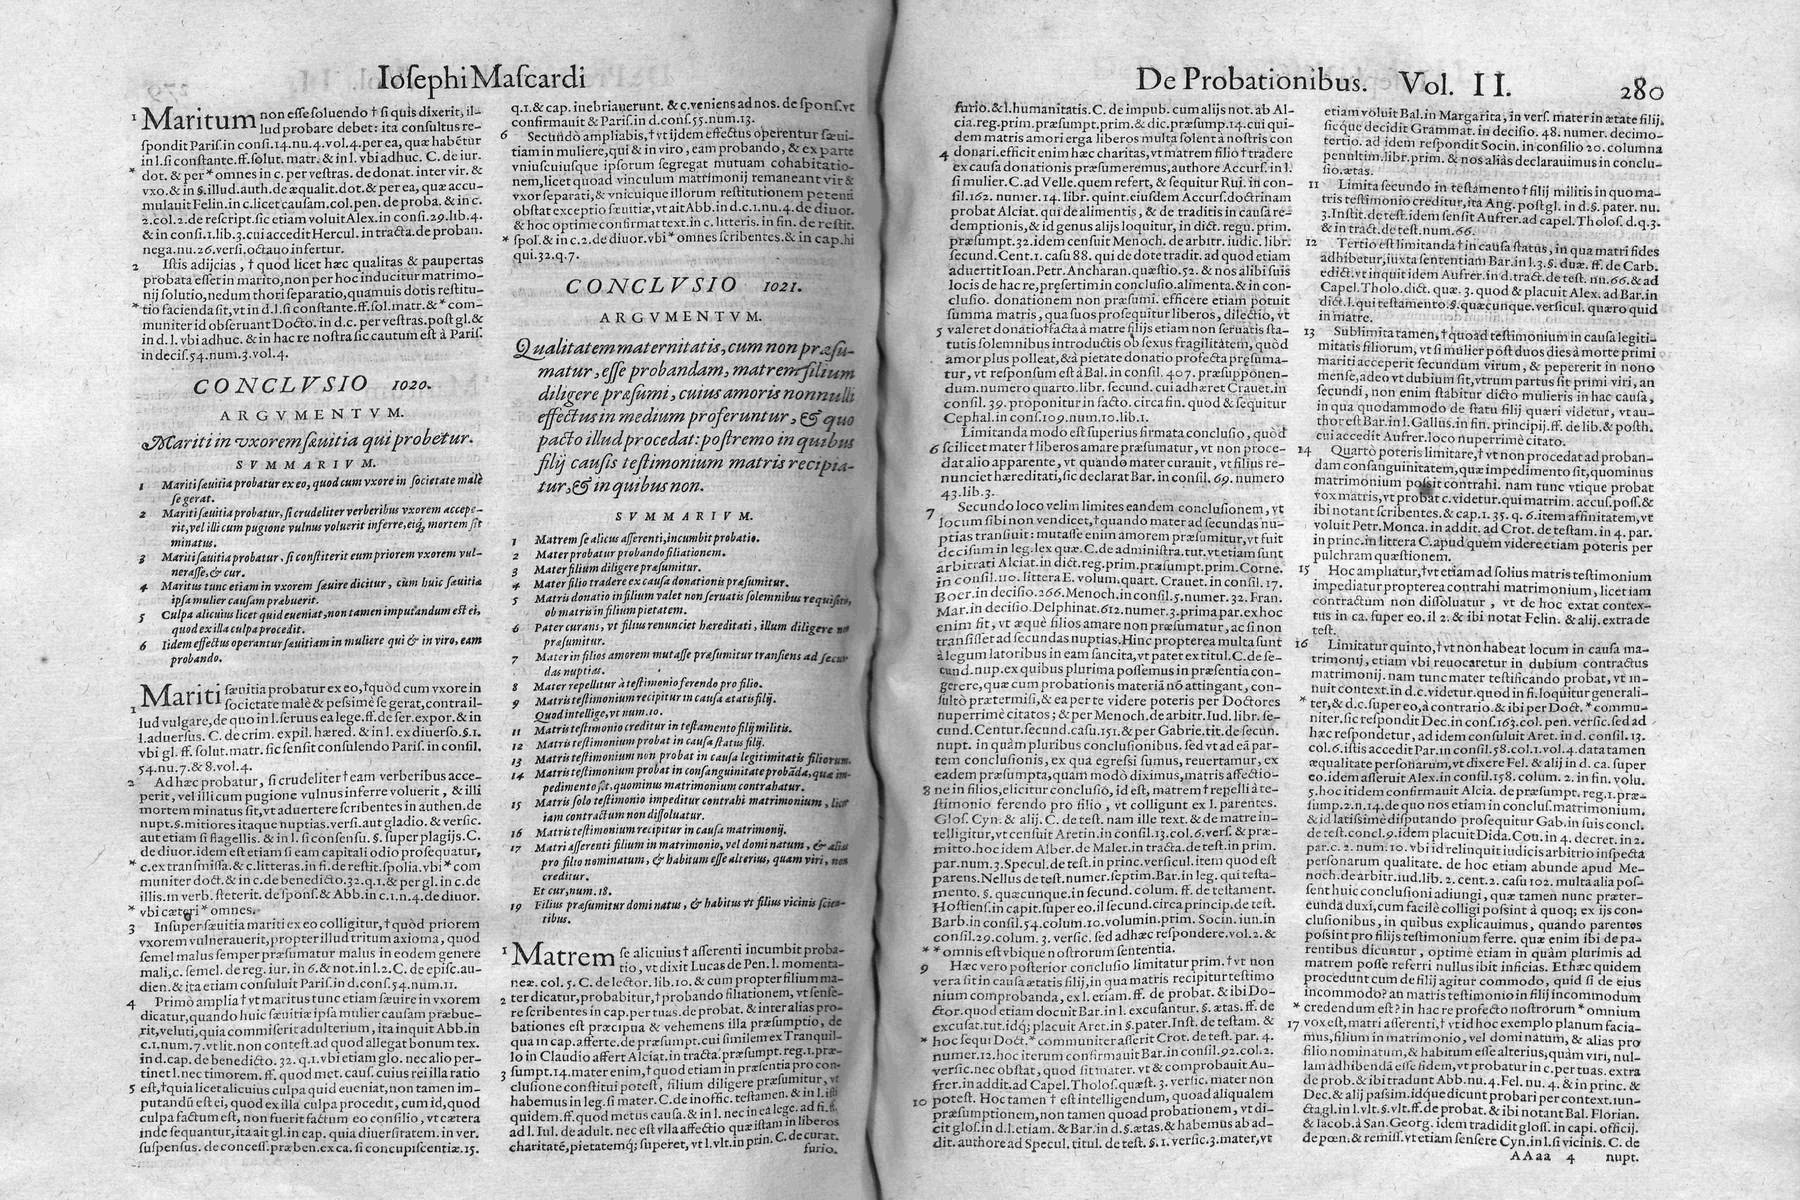 Iosephi Mascardi
1 Maritum non esse soluendo † si quis dixerit, il-
lud probare debet: ita consultus re-
spondit Paris. in consi. 14. nu. 4. vol. 4. per ea, quæ habẽtur
in l. si constante. ff. solut. matr. & in l. vbi adhuc. C. de iur.
* dot. & per * omnes in c. per vestras. de donat. inter vir. &
vxo. & in §. illud. auth. de æqualit. dot. & per ea, quæ accu-
mulauit Felin. in c. licet causam. col. pen. de proba. & in c.
2. col. 2. de rescript. sic etiam voluit Alex. in consi. 29. lib. 4.
& in consi. 1. lib. 3. cui accedit Hercul. in tracta. de proban.
nega. nu. 26. versi. octauo infertur.
2 Istis adijcias, † quod licet hæc qualitas & paupertas
probata esset in marito, non per hoc inducitur matrimo-
nij solutio, nedum thori separatio, quamuis dotis restitu-
* tio facienda sit, vt in d. l. si constante. ff. sol. matr. & * com-
muniter id obseruant Docto. in d. c. per vestras. post gl. &
in d. l. vbi adhuc. & in hac re nostra sic cautum est à Paris.
in decis. 54. num. 3. vol. 4.
CONCLVSIO 1020.
ARGVMENTVM.
Mariti in vxorem sæuitia qui probetur.
SVMMARIVM.
1 Mariti sæuitia probatur ex eo, quod cum vxore in societate malè
se gerat.
2 Mariti sæuitia probatur, si crudeliter verberibus vxorem accepe-
rit, vel illi cum pugione vulnus voluerit inferre, eiq; mortem sit
minatus.
3 Mariti sæuitia probatur, si constiterit eum priorem vxorem vul-
nerasse, & cur.
4 Maritus tunc etiam in vxorem sæuire dicitur, cùm huic sæuitiæ
ipsa mulier causam præbuerit.
5 Culpa alicuius licet quid eueniat, non tamen imputandum est ei,
quod ex illa culpa procedit.
6 Iidem effectus operantur sæuitiam in muliere qui & in viro, eam
probando.
1 Mariti sæuitia probatur ex eo, † quòd cum vxore in
societate malè & pessimè se gerat, contra il-
lud vulgare, de quo in l. seruus ea lege. ff. de ser. expor. & in
l. aduersus. C. de crim. expil. hæred. & in l. ex diuerso. §. 1.
vbi gl. ff. solut. matr. sic sensit consulendo Paris. in consil.
54. nu. 7. & 8. vol. 4.
2 Ad hæc probatur, si crudeliter † eam verberibus acce-
perit, vel illi cum pugione vulnus inferre voluerit, & illi
mortem minatus sit, vt aduertere scribentes in authen. de
nupt. §. mitiores itaque nuptias. versi. aut gladio. & versic.
aut etiam si flagellis. & in l. si consensu. §. super plagijs. C.
de diuor. idem est etiam si eam capitali odio prosequatur,
* c. ex transmissa. & c. litteras. in fi. de restit. spolia. vbi * com
muniter doct. & in c. de benedicto. 32. q. 1. & per gl. in c. de
illis. in verb. steterit. de spons. & Abb. in c. 1. n. 4. de diuor.
* vbi cæteri * omnes.
3 Insuper sæuitia mariti ex eo colligitur, † quòd priorem
vxorem vulnerauerit, propter illud tritum axioma, quòd
semel malus semper præsumatur malus in eodem genere
mali, c. semel. de reg. iur. in 6. & not. in l. 2. C. de episc. au-
dien. & ita etiam consuluit Paris. in d. cons. 54. num. 11.
4 Primò amplia † vt maritus tunc etiam sæuire in vxorem
dicatur, quando huic sæuitiæ ipsa mulier causam præbue-
rit, veluti, quia commiserit adulterium, ita inquit Abb. in
c. 1. num. 7. vt lit. non contest. ad quod allegat bonum tex.
in d. cap. de benedicto. 32. q. 1. vbi etiam glo. nec alio per-
tinet l. nec timorem. ff. quod met. caus. cuius rei illa ratio
5 est, † quia licet alicuius culpa quid eueniat, non tamen im-
putandũ est ei, quod ex illa culpa procedit, cum id, quod
culpa factum est, non fuerit factum eo consilio, vt cætera
inde sequantur, ita ait gl. in cap. quia diuersitatem. in ver.
suspensus. de concess. præben. ex ca. si concupiscentiæ. 15.
q. 1. & cap. inebriauerunt. & c. veniens ad nos. de spons. vt
confirmauit & Paris. in d. cons. 55. num. 13.
6 Secundò ampliabis, † vt ijdem effectus operentur sæui-
tiam in muliere, qui & in viro, eam probando, & ex parte
vniuscuiusque ipsorum segregat mutuam cohabitatio-
nem, licet quoad vinculum matrimonij remaneant vir &
vxor separati, & vnicuique illorum restitutionem petenti
obstat exceptio sæuitiæ, vt ait Abb. in d. c. 1. nu. 4. de diuor.
& hoc optime confirmat text. in c. litteris. in fin. de restit.
* spol. & in c. 2. de diuor. vbi * omnes scribentes. & in cap. hi
qui. 32. q. 7.
CONCLVSIO 1021.
ARGVMENTVM.
Qualitatem maternitatis, cum non præsu-
matur, esse probandam, matrem filium
diligere præsumi, cuius amoris nonnulli
effectus in medium proferuntur, & quo
pacto illud procedat: postremo in quibus
filij causis testimonium matris recipia-
tur, & in quibus non.
SVMMARIVM.
1 Matrem se alicus asserenti, incumbit probatio.
2 Mater probatur probando filiationem.
3 Mater filium diligere præsumitur.
4 Mater filio tradere ex causa donationis præsumitur.
5 Matris donatio in filium valet non seruatis solemnibus requisitis,
ob matris in filium pietatem.
6 Pater curans, vt filius renunciet hæreditati, illum diligere non
præsumitur.
7 Mater in filios amorem mutasse præsumitur transiens ad secun-
das nuptias.
8 Mater repellitur à testimonio ferendo pro filio.
9 Matris testimonium recipitur in causa ætatis filij.
Quod intellige, vt num. 10.
11 Matris testimonio creditur in testamento filij militis.
12 Matris testimonium probat in causa status filij.
13 Matris testimonium non probat in causa legitimitatis filiorum.
14 Matris testimonium probat in consanguinitate probãda, quæ im-
pedimento sit, quominus matrimonium contrahatur.
15 Matris solo testimonio impeditur contrahi matrimonium, licet
iam contractum non dissoluatur.
16 Matris testimonium recipitur in causa matrimonij.
17 Matri asserenti filium in matrimonio, vel domi natum, & alias
pro filio nominatum, & habitum esse alterius, quam viri, non
creditur.
Et cur, num. 18.
19 Filius præsumitur domi natus, & habitus vt filius vicinis scien-
tibus.
1 Matrem se alicuius † asserenti incumbit proba-
tio, vt dixit Lucas de Pen. l. momenta-
neæ. col. 5. C. de lector. lib. 10. & cum propter filium ma-
2 ter dicatur, probabitur, † probando filiationem, vt sense-
re scribentes in cap. per tuas. de probat. & inter alias pro-
bationes est præcipua & vehemens illa præsumptio, de
qua in cap. afferte. de præsumpt. cui similem ex Tranquil-
lo in Claudio affert Alciat. in tracta. præsumpt. reg. 1. præ-
3 sumpt. 14. mater enim, † quod etiam in præsentia pro con-
clusione constitui potest, filium diligere præsumitur, vt
habemus in leg. si mater. C. de inoffic. testamen. & in l. isti
quidem. ff. quod metus causa. & in l. nec in ea lege. ad fi. ff.
ad l. Iul. de adult. nec est vlla affectio quæ istam in liberos
charitatẽ, pietatemq; superet, vt l. vlt. in prin. C. de curat.
furio.
De Probationibus. Vol. II. 280
furio. & l. humanitatis. C. de impub. cum alijs not. ab Al-
cia. reg. prim. præsumpt. prim. & dic. præsump. 14. cui qui-
dem matris amori erga liberos multa solent à nostris con
4 donari. efficit enim hæc charitas, vt matrem filio † tradere
ex causa donationis præsumeremus, authore Accurs. in l.
si mulier. C. ad Velle. quem refert, & sequitur Rui. in con-
sil. 162. numer. 14. libr. quint. eiusdem Accurs. doctrinam
probat Alciat. qui de alimentis, & de traditis in causa re-
demptionis, & id genus alijs loquitur, in dict. regu. prim.
præsumpt. 32. idem censuit Menoch. de arbitr. iudic. libr.
secund. Cent. 1. casu 88. qui de dote tradit. ad quod etiam
aduertit Ioan. Petr. Ancharan. quæstio. 52. & nos alibi suis
locis de hac re, præsertim in conclusio. alimenta. & in con-
clusio. donationem non præsumi. efficere etiam potuit
summa matris, qua suos prosequitur liberos, dilectio, vt
5 valeret donatio † facta à matre filijs etiam non seruatis sta-
tutis solemnibus introductis ob sexus fragilitatem, quòd
amor plus polleat, & à pietate donatio profecta præsuma-
tur, vt responsum est à Bal. in consil. 407. præsupponen-
dum. numero quarto. libr. secund. cui adhæret Crauet. in
consil. 39. proponitur in facto. circa fin. quod & sequitur
Cephal. in cons. 109. num. 10. lib. 1.
Limitanda modo est superius firmata conclusio, quòd
6 scilicet mater † liberos amare præsumatur, vt non proce-
dat alio apparente, vt quando mater curauit, vt filius re-
nunciet hæreditati, sic declarat Bar. in consil. 69. numero
43. lib. 3.
7 Secundo loco velim limites eandem conclusionem, vt
locum sibi non vendicet, † quando mater ad secundas nu-
ptias transiuit: mutasse enim amorem præsumitur, vt fuit
decisum in leg. lex quæ. C. de administra. tut. vt etiam sunt
arbitrati Alciat. in dict. reg. prim. præsumpt. prim. Corne.
in consil. 110. littera E. volum. quart. Crauet. in consil. 17.
Boer. in decisio. 266. Menoch. in consil. 5. numer. 32. Fran.
Mar. in decisio. Delphinat. 612. numer. 3. prima par. ex hoc
enim fit, vt æquè filios amare non præsumatur, ac si non
transisset ad secundas nuptias. Hinc propterea multa sunt
à legum latoribus in eam sancita, vt patet ex titul. C. de se-
cund. nup. ex quibus plurima possemus in præsentia con-
gerere, quæ cum probationis materiã nõ attingant, con-
sultò prætermisi, & ea per te videre poteris per Doctores
nuperrimè citatos; & per Menoch. de arbitr. Iud. libr. se-
cund. Centur. secund. casu. 151. & per Gabrie. tit. de secun.
nupt. in quàm pluribus conclusionibus. sed vt ad eã par-
tem conclusionis, ex qua egressi sumus, reuertamur, ex
eadem præsumpta, quam modò diximus, matris affectio-
8 ne in filios, elicitur conclusio, id est, matrem † repelli à te-
stimonio ferendo pro filio, vt colligunt ex l. parentes.
Glos. Cyn. & alij. C. de test. nam ille text. & de matre in-
telligitur, vt censuit Aretin. in consil. 13. col. 6. vers. & præ-
mitto. hoc idem Alber. de Malet. in tracta. de test. in prim.
par. num. 3. Specul. de test. in princ. versicul. item quod est
parens. Nellus de test. numer. septim. Bar. in leg. qui testa-
mento. §. quæcunque. in secund. colum. ff. de testament.
Hostiens. in capit. super eo. il secund. circa princip. de test.
Barb. in consil. 54. colum. 10. volumin. prim. Socin. iun. in
consil. 29. colum. 3. versic. sed adhæc respondere. vol. 2. &
** omnes est vbique nostrorum sententia.
9 Hæc vero posterior conclusio limitatur prim. † vt non
vera sit in causa ætatis filij, in qua matris recipitur testimo
nium comprobanda, ex l. etiam. ff. de probat. & ibi Do-
ctor. quod etiam docuit Bar. in l. excusantur. §. ætas. ff. de
excusat. tut. idq; placuit Aret. in §. pater. Inst. de testam. &
* hoc sequi Doct. * communiter asserit Crot. de test. par. 4.
numer. 12. hoc iterum confirmauit Bar. in consil. 92. col. 2.
versic. nec obstat, quod sit mater. vt & comprobauit Au-
frer. in addit. ad Capel. Tholos. quæst. 3. versic. mater non
10 potest. Hoc tamen † est intelligendum, quoad aliqualem
præsumptionem, non tamen quoad probationem, vt di-
cit glos. in d. l. etiam. & Bar. in d. §. ætas. & habemus ab ad-
dit. authore ad Specul. titul. de test. §. 1. versic. 3. mater, vt
etiam voluit Bal. in Margarita, in vers. mater in ætate filij.
sicque decidit Grammat. in decisio. 48. numer. decimo-
tertio. ad idem respondit Socin. in consilio 20. columna
penultim. libr. prim. & nos aliàs declarauimus in conclu-
sio. ætas.
11 Limita secundo in testamento † filij militis in quo ma-
tris testimonio creditur, ita Ang. post gl. in d. §. pater. nu.
3. Instit. de test. idem sensit Aufrer. ad capel. Tholos. d. q. 3.
& in tract. de test. num. 66.
12 Tertio est limitanda † in causa status, in qua matri fides
adhibetur, iuxta sententiam Bar. in l. 3. §. duæ. ff. de Carb.
edict. vt inquit idem Aufrer. in d. tract. de test. nu. 66. & ad
Capel. Tholo. dict. quæ. 3. quod & placuit Alex. ad Bar. in
dict. l. qui testamento. §. quæcunque. versicul. quæro quid
in matre.
13 Sublimita tamen, † quoad testimonium in causa legiti-
mitatis filiorum, vt si mulier post duos dies à morte primi
mariti acceperit secundum virum, & pepererit in nono
mense, adeo vt dubium sit, vtrum partus sit primi viri, an
secundi, non enim stabitur dicto mulieris in hac causa,
in qua quodammodo de statu filij quæri videtur, vt au-
thor est Bar. in l. Gallus. in fin. principij. ff. de lib. & posth.
cui accedit Aufrer. loco nuperrimè citato.
14 Quartò poteris limitare, † vt non procedat ad proban-
dam consanguinitatem, quæ impedimento sit, quominus
matrimonium possit contrahi. nam tunc vtique probat
vox matris, vt probat c. videtur. qui matrim. accus. poss. &
ibi notant scribentes. & cap. 1. 35. q. 6. item affinitatem, vt
voluit Petr. Monca. in addit. ad Crot. de testam. in 4. par.
in princ. in littera C. apud quem videre etiam poteris per
pulchram quæstionem.
15 Hoc ampliatur, † vt etiam ad solius matris testimonium
impediatur propterea contrahi matrimonium, licet iam
contractum non dissoluatur, vt de hoc extat contex-
tus in ca. super eo. il 2. & ibi notat Felin. & alij. extra de
test.
16 Limitatur quinto, † vt non habeat locum in causa ma-
trimonij, etiam vbi reuocaretur in dubium contractus
matrimonij. nam tunc mater testificando probat, vt in-
nuit context. in d. c. videtur. quod in fi. loquitur generali-
* ter, & d. c. super eo, à contrario. & ibi per Doct. * commu-
niter. sic respondit Dec. in cons. 163. col. pen. versic. sed ad
hæc respondetur, ad idem consuluit Aret. in d. consil. 13.
col. 6. istis accedit Par. in consil. 58. col. 1. vol. 4. data tamen
æqualitate personarum, vt dixere Fel. & alij in d. ca. super
eo. idem asseruit Alex. in consil. 158. colum. 2. in fin. volu.
5. hoc itidem confirmauit Alcia. de præsumpt. reg. 1. præ-
sump. 2. n. 14. de quo nos etiam in conclus. matrimonium.
& id latissimè disputando prosequitur Gab. in suis concl.
de test. concl. 9. idem placuit Dida. Cou. in 4. decret. in 2.
par. c. 2. num. 10. vbi id relinquit iudicis arbitrio inspecta
personarum qualitate. de hoc etiam abunde apud Me-
noch. de arbitr. iud. lib. 2. cent. 2. casu 102. multa alia pos-
sent huic conclusioni adiungi, quæ tamen nunc præter-
eunda duxi, cum facilè colligi possint à quoq; ex ijs con-
clusionibus, in quibus explicauimus, quando parentes
possint pro filijs testimonium ferre. quæ enim ibi de pa-
rentibus dicuntur, optimè etiam in quàm plurimis ad
matrem posse referri nullus ibit inficias. Et hæc quidem
procedunt cum de filij agitur commodo, quid si de eius
incommodo? an matris testimonio in filij incommodum
* credendum est? in hac re profecto nostrorum * omnium
17 vox est, matri asserenti, † vt id hoc exemplo planum facia-
mus, filium in matrimonio, vel domi natum, & alias pro
filio nominatum, & habitum esse alterius, quàm viri, nul-
lam adhibendã esse fidem, vt probatur in c. per tuas. extra
de prob. & ibi tradunt Abb. nu. 4. Fel. nu. 4. & in princ. &
Dec. & alij passim. idque dicunt probari per context. iun-
cta gl. in l. vlt. §. vlt. ff. de probat. & ibi notant Bal. Florian.
& Iacob. à San. Georg. idem tradidit gloss. in capi. officij.
de pœn. & remiss. vt etiam sensere Cyn. in l. si vicinis. C. de
AAaa 4 nupt.